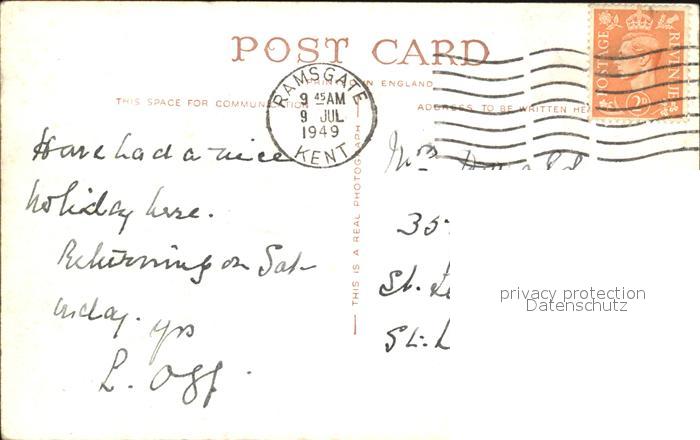 POST CARD
PRINTED IN ENGLAND
THIS SPACE FOR COMMUNICATION
ADDRESS TO BE WRITTEN HE
POSTAGE
REVENUE
2D
RAMSGATE
9 45 AM
9 JUL
1949
KENT
THIS IS A REAL PHOTOGRAPH
Have had a nice
holiday here.
Returning on Sat-
urday. yrs
L.
Mrs
35
St.
St. L
privacy protection
Datenschutz